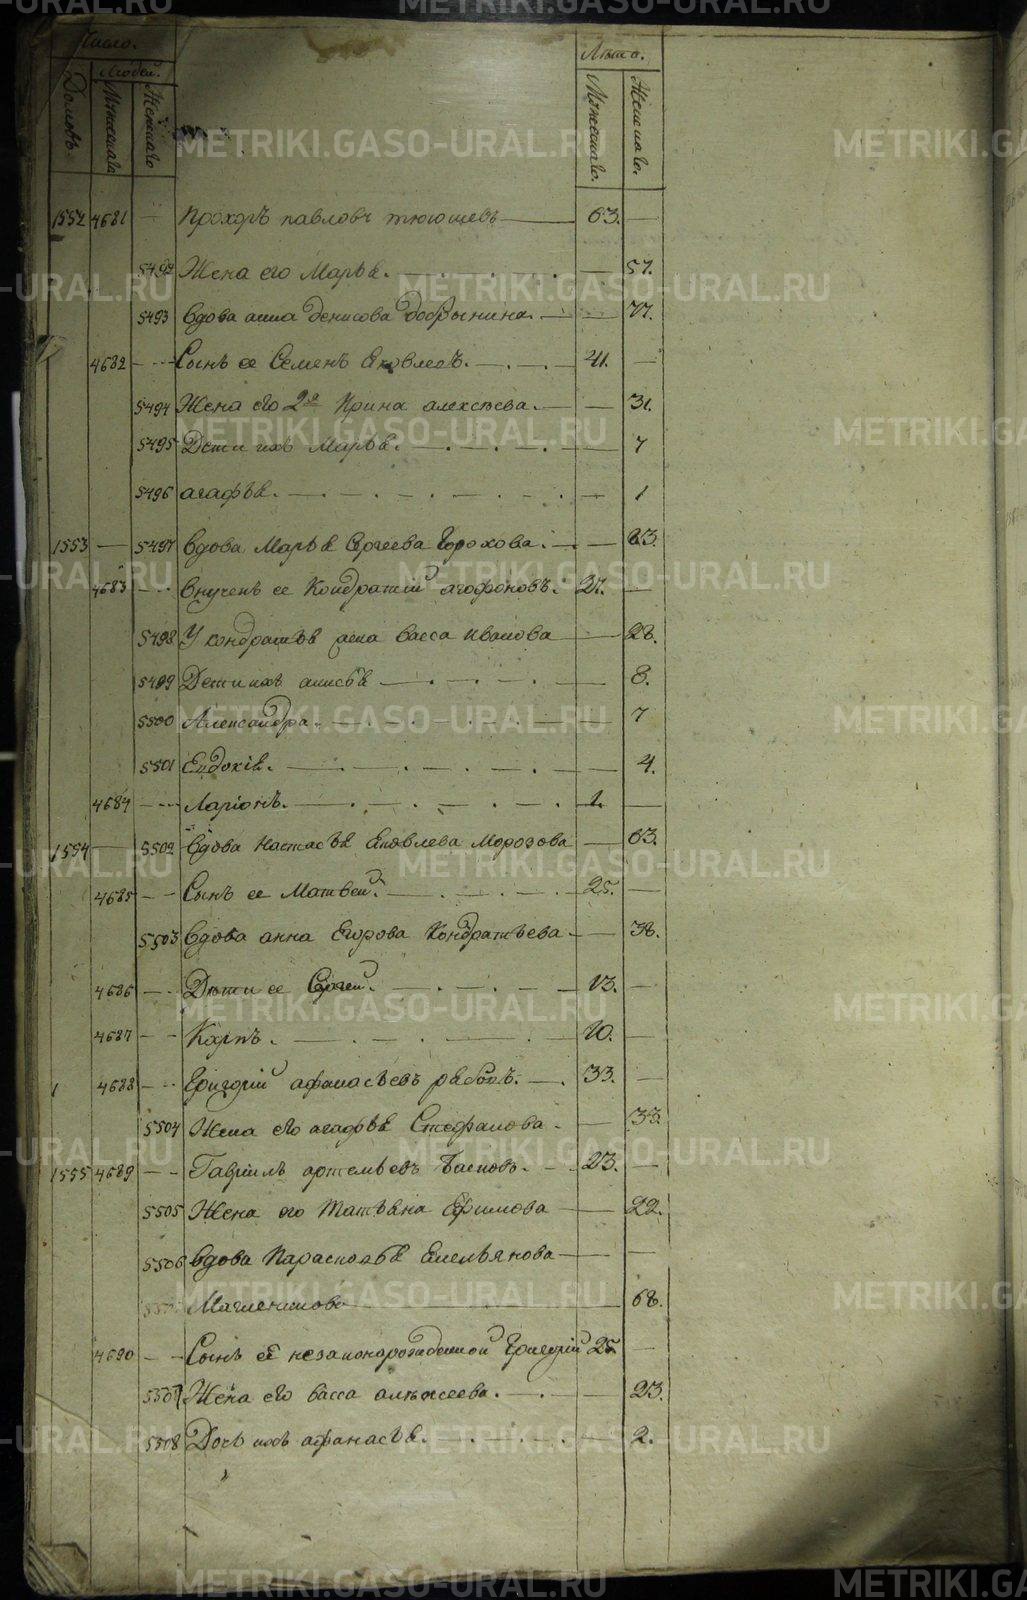 Число.
Людей.
Домовъ.
Мужескаго
Женскаго
Лѣто.
Мужескаго.
Женскаго.
1552 4681 — Прохоръ павловъ тюющевъ — 63. —
5492 Жена его Марья. — 57.
5493 Вдова анна денисова добрынина. — 77.
4682 — Сынъ ее Семенъ Яковлевъ. — 41. —
5494 Жена его 2я Ирина алексѣева. — 31.
5495 Дети ихъ Марья. — 7
5496 агафья. — 1
1553 — 5497 Вдова Марья Сергеева Горохова. — 63.
4683 — Внучекъ ее Кондратій агафоновъ. 27. —
5498 У кондратья жена васса иванова — 28.
5499 Дети ихъ анисья — 8.
5500 Александра. — 7
5501 Евдокія. — 4.
4684 — Ларіонъ. — 1. —
1554 — 5502 Вдова настасья Яковлева Морозова — 63.
4685 — Сынъ ее Матвей. — 25. —
5503 Вдова анна Егорова Кондратьева — 38.
4686 — Дѣти ее Сергей. — 13. —
4687 — Карпъ. — 10. —
1 4688 — Григорій афанасьевъ рябовъ. — 33. —
5504 Жена его агафья Стефанова. — 33.
1555 4689 — Гавріилъ артемьевъ Басновъ. — 23. —
5505 Жена его Татьяна Ефимова — 22.
5506 Вдова Парасковья Емельянова —
— 68.
4690 — Сынъ её незаконорожденной Григорій 25. —
5507 Жена его васса алексеева. — 23.
5508 Дочь ихъ афанасья. — 2.
METRIKI.GASO-URAL.RU